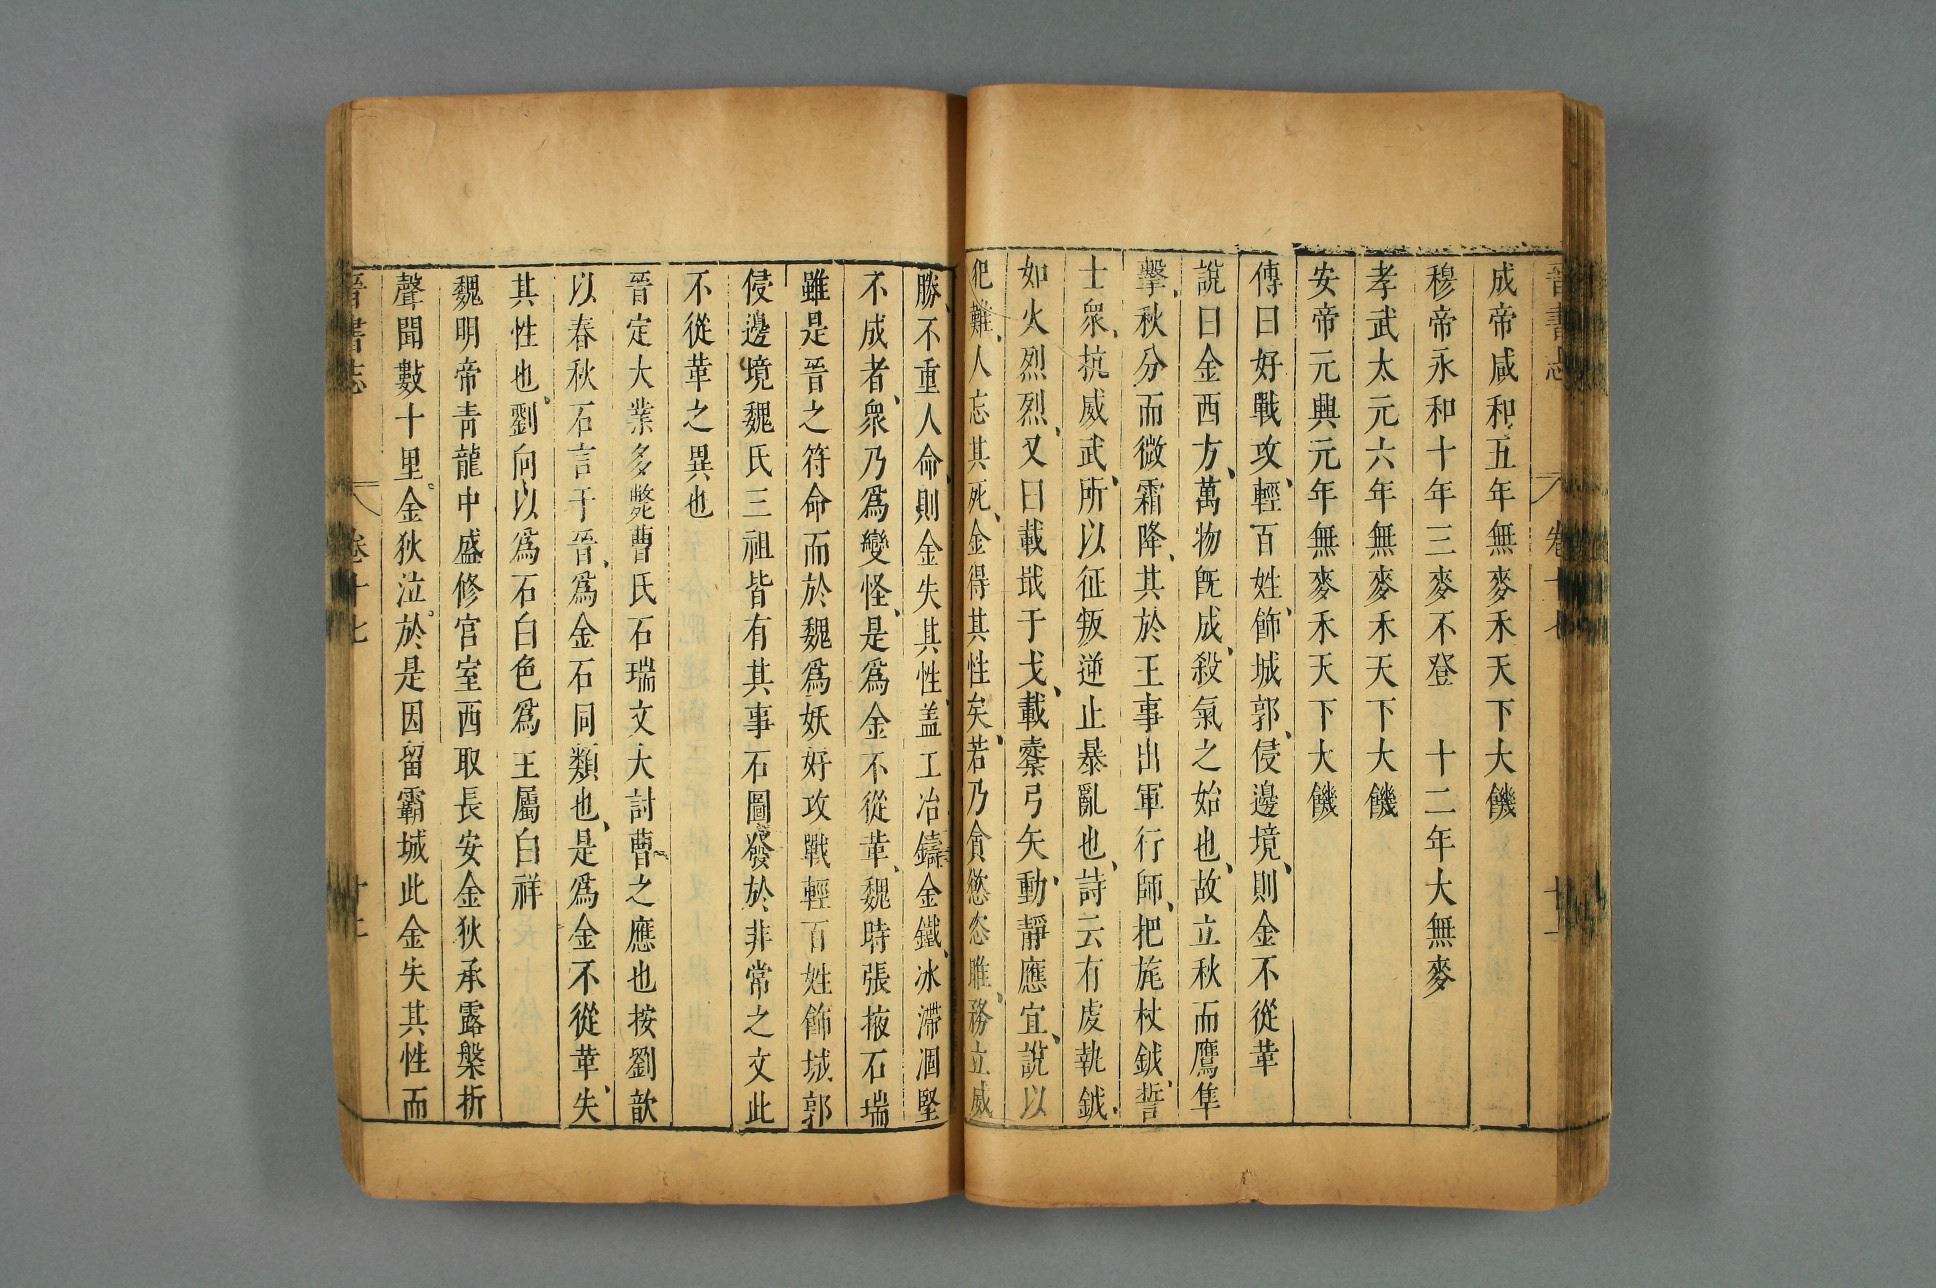 晉書志 卷十七
成帝咸和五年無麥禾天下大饑
穆帝永和十年三麥不登 十二年大無麥
孝武太元六年無麥禾天下大饑
安帝元興元年無麥禾天下大饑
傳曰好戰攻輕百姓飾城郭侵邊境則金不從革
說曰金西方萬物旣成殺氣之始也故立秋而鷹隼
擊秋分而微霜降其於王事出軍行師把旄杖鉞誓
士衆抗威武所以征叛逆止暴亂也詩云有虔執鉞
如火烈烈又曰載戢干戈載櫜弓矢動靜應宜說以
犯難人忘其死金得其性矣若乃貪慾恣睢務立威
勝不重人命則金失其性蓋工冶鑄金鐵冰滯涸堅
不成者衆乃爲變怪是爲金不從革魏時張掖石瑞
雖是晉之符命而於魏爲妖好攻戰輕百姓飾城郭
侵邊境魏氏三祖皆有其事石圖發於非常之文此
不從革之異也
晉定大業多斃曹氏石瑞文大討曹之應也按劉歆
以春秋石言于晉爲金石同類也是爲金不從革失
其性也劉向以爲石白色爲主屬白祥
魏明帝青龍中盛修宮室西取長安金狄承露槃折
聲聞數十里金狄泣於是因留霸城此金失其性而
晉書志 卷十七